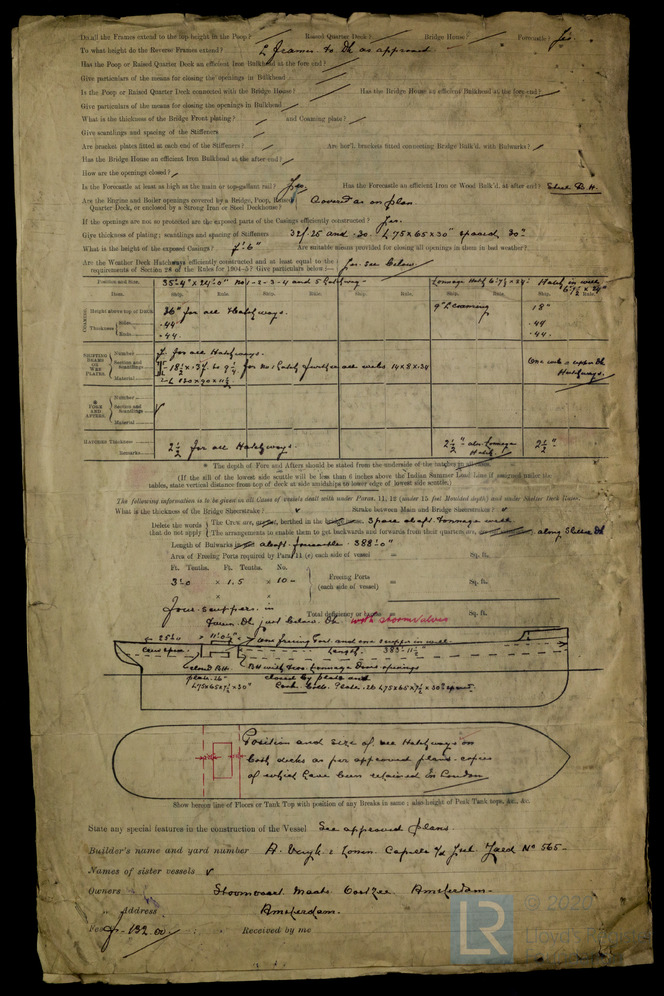 Do all the Frames extend to the top height in the Poop? Raised Quarter Deck? Bridge House? Forecastle? Yes
To what height do the Reverse Frames extend? L frames to Dk as approved
Has the Poop or Raised Quarter Deck an efficient Iron Bulkhead at the fore end?
Give particulars of the means for closing the openings in Bulkhead
Is the Poop or Raised Quarter Deck connected with the Bridge House? Has the Bridge House an efficient Bulkhead at the fore end?
Give particulars of the means for closing the openings in Bulkhead
What is the thickness of the Bridge Front plating? and Coaming plate?
Give scantlings and spacing of the Stiffeners
Are bracket plates fitted at each end of the Stiffeners? Are hor'l. brackets fitted connecting Bridge Bulk'd. with Bulwarks?
Has the Bridge House an efficient Iron Bulkhead at the after end?
How are the openings closed?
Is the Forecastle at least as high as the main or top-gallant rail? Yes. Has the Forecastle an efficient Iron or Wood Bulk'd. at after end? Steel B.H.
Are the Engine and Boiler openings covered by a Bridge, Poop, Raised Quarter Deck, or enclosed by a Strong Iron or Steel Deckhouse? Covered as on plan
If the openings are not so protected are the exposed parts of the Casings efficiently constructed? Yes.
Give thickness of plating; scantlings and spacing of Stiffeners 32/26 and .30 L 75x65x30" spaced 30"
What is the height of the exposed Casings? 7'-6" Are suitable means provided for closing all openings in them in bad weather?
Are the Weather Deck Hatchways efficiently constructed and at least equal to the
requirements of Section 28 of the Rules for 1904-5? Give particulars below:— Yes. see below
Position and Size. 35'-4" x 24'-0" No 1-2-3-4 and 5 Hatchway Tonnage Hatch Hatch in well
Item. Ship. Rule. Ship. Rule. Ship. Rule. Ship. Rule. Ship. Rule.
COAMING Height above top of Deck 36" for all Hatchways. 9" L coaming 18"
Thickness Sides .44 .44
Ends .44 .44
SHIFTING BEAMS OR WEB PLATES. Number for all Hatchways.
Section and Scantlings
Material
FORE AND AFTERS. Number
Section and Scantlings
Material
HATCHES Thickness 2½ for all Hatchways. 2½" 2½"
Remarks
* The depth of Fore and Afters should be stated from the underside of the hatches in all cases.
(If the sill of the lowest side scuttle will be less than 6 inches above the Indian Summer Load Line if assigned under the
tables, state vertical distance from top of deck at side amidships to lower edge of lowest side scuttle.)
The following information is to be given in all Cases of vessels dealt with under Paras. 11, 12 (under 15 feet Moulded depth) and under Shelter Deck Rules.
What is the thickness of the Bridge Sheerstrake? Strake between Main and Bridge Sheerstrakes?
Delete the words that do not apply
The Crew are, are not, berthed in the bridge house. Space abaft tonnage well
The arrangements to enable them to get backwards and forwards from their quarters are, are not, along Shelter Dk
Length of Bulwarks in well abaft forecastle 388'-0"
Area of Freeing Ports required by Para. 11 (c) each side of vessel = Sq. ft.
Ft. Tenths. Ft. Tenths. No.
3.0 x 1.5 x 10 — Freeing Ports (each side of vessel) = Sq. ft.
x x
Four scuppers in
Tween Dk just below Dk with stormvalves
Total deficiency or excess = Sq. ft.
one freeing Port and one scupper in well
Crew space Length 383'-11½"
closed BH. BH with two Tonnage Door openings
plate .26" closed by plate and
L75x65x7½x30" L75x65x7½x30" spaced.
Position and size of all Hatchways on
both decks as per approved plans copies
of which have been retained in London
Show hereon line of Floors or Tank Top with position of any Breaks in same; also height of Peak Tank tops, &c. &c.
State any special features in the construction of the Vessel See approved Plans
Builder's name and yard number A. Vuyk & Zonen Capelle a/d Yssel Yard No 565-
Names of sister vessels
Owners Stoomvaart Maats. Oostzee. Amsterdam.
" Address Amsterdam.
Fee f - 132.00. Received by me
LR © 2020
Lloyd's Register